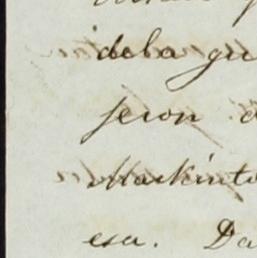 deba gu
jeron
Mackinto
esa. Da